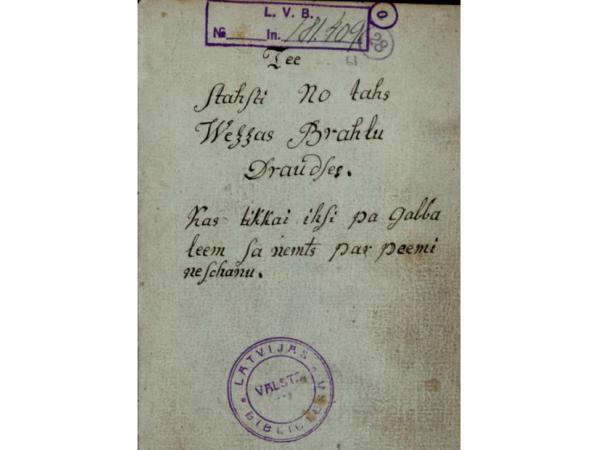 L. V. B.
№ In. 181.409
0
28
Tee
stahsti No tahs
Wezzas Brahlu
Draudses.
Kas tikkai ihsi pa gabba
leem sa nemts par peemi
neschanu.
LATVIJAS V
VALSTS
BIBLIOTEK